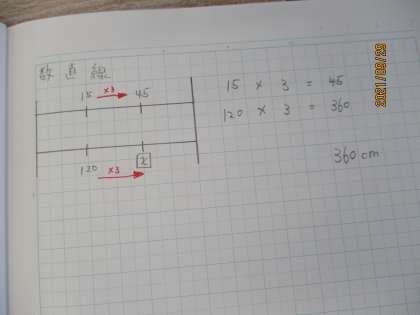 15 ×3 45
120 ×3 x
15 × 3 = 45
120 × 3 = 360
360cm
2021/09/29